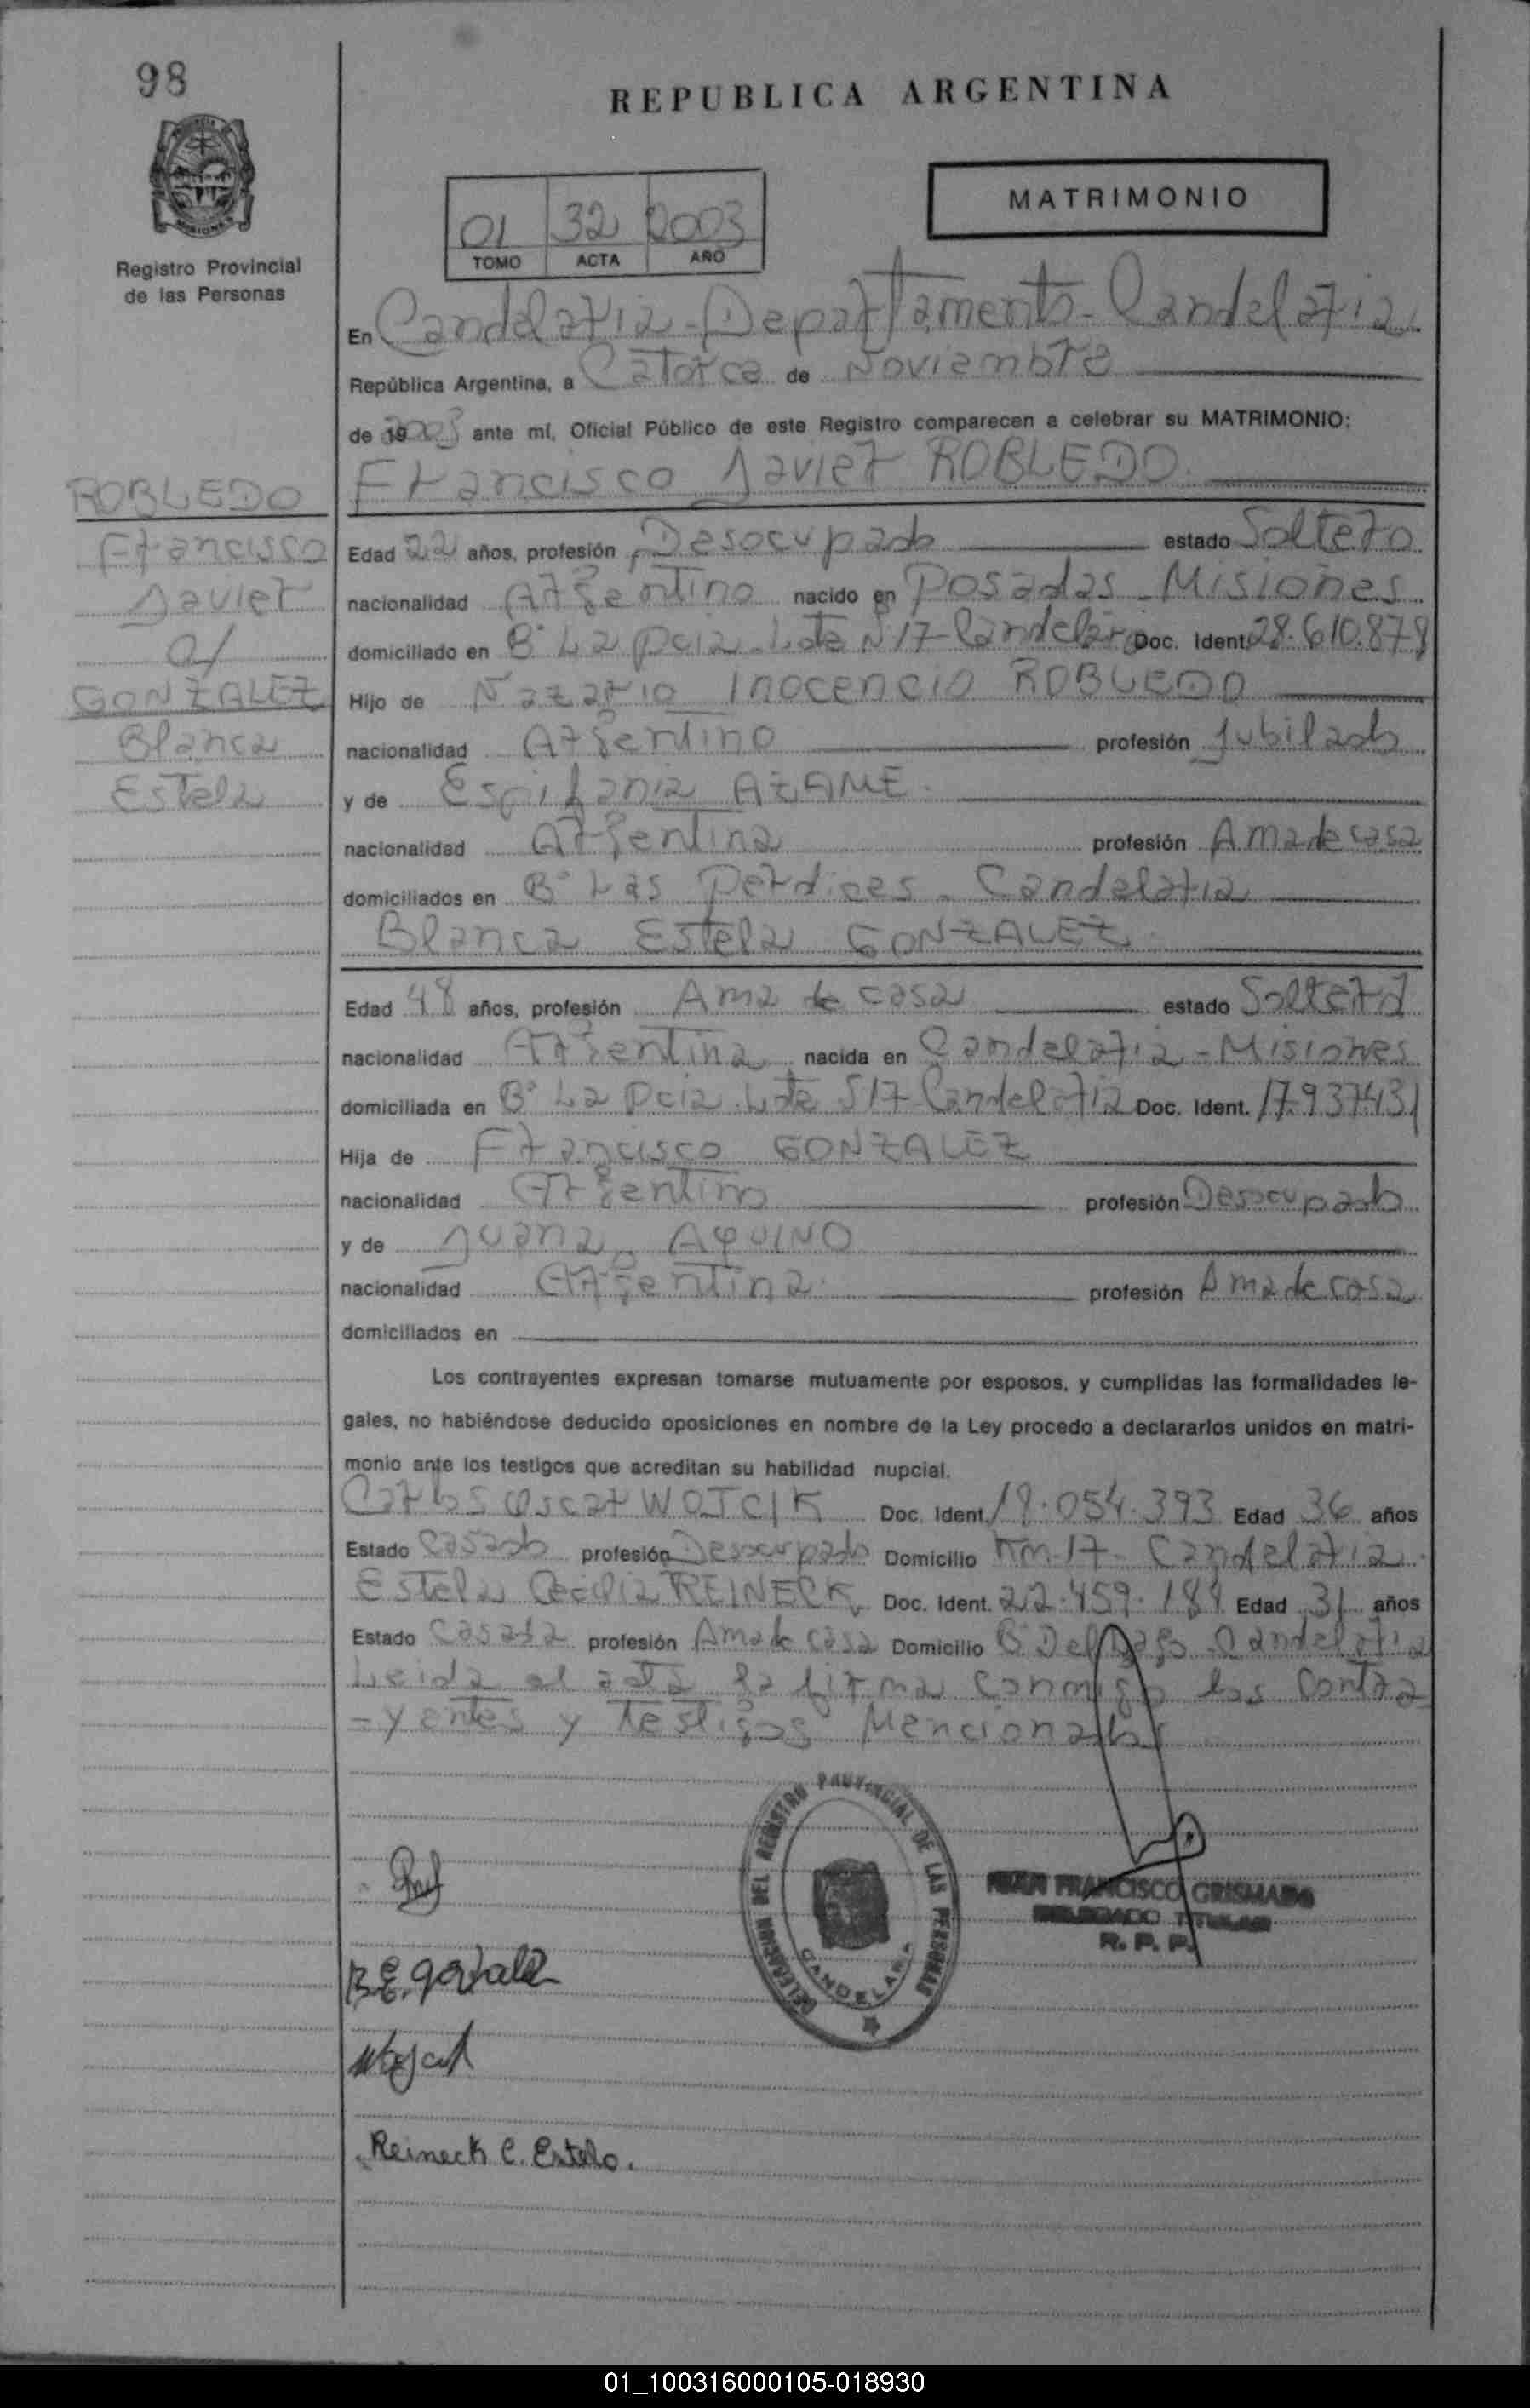 98
REPUBLICA ARGENTINA
MATRIMONIO
01 32 2003
TOMO ACTA AÑO
Registro Provincial
de las Personas
En Candelaria - Departamento - Candelaria
República Argentina, a Catorce de Noviembre
de 2003 ante mí, Oficial Público de este Registro comparecen a celebrar su MATRIMONIO:
Francisco Javier ROBLEDO.
ROBLEDO
Francisco
Javier
c/
GONZALEZ
Blanca
Estela
Edad 22 años, profesión Desocupado estado Soltero
nacionalidad Argentino nacido en Posadas - Misiones
domiciliado en Bº La Lote Nº 17 Candelaria Doc. Ident. 28.610.879
Hijo de Nazario Inocencio ROBLEDO
nacionalidad Argentino profesión Jubilado
y de Espifania AZAME.
nacionalidad Argentina profesión Ama de casa
domiciliados en Bº Las Perdices - Candelaria
Blanca Estela GONZALEZ.
Edad 48 años, profesión Ama de casa estado Soltera
nacionalidad Argentina nacida en Candelaria - Misiones
domiciliada en Bº La Lote 17 Candelaria Doc. Ident. 17.937.431
Hija de Francisco GONZALEZ
nacionalidad Argentino profesión Desocupado
y de Juana AQUINO
nacionalidad Argentina profesión Ama de casa
domiciliados en
Los contrayentes expresan tomarse mutuamente por esposos, y cumplidas las formalidades le-
gales, no habiéndose deducido oposiciones en nombre de la Ley procedo a declararlos unidos en matri-
monio ante los testigos que acreditan su habilidad nupcial.
Carlos Oscar WOJCIK Doc. Ident. 18.054.393 Edad 36 años
Estado Casado profesión Desocupado Domicilio Km-17 - Candelaria
Estela Cecilia REINECK Doc. Ident. 22.459.184 Edad 31 años
Estado Casada profesión Ama de casa Domicilio Bº Del Lago Candelaria
Leida el acta la firma conmigo los Contra
-yentes y testigos Mencionados
DELEGACION DEL REGISTRO PROVINCIAL DE LAS PERSONAS
CANDELARIA
FRANCISCO GRISMADO
DELEGADO TITULAR
R. P. P.
B.E. gonzalez
Wojcik
Reineck C. Estela.
01_100316000105-018930